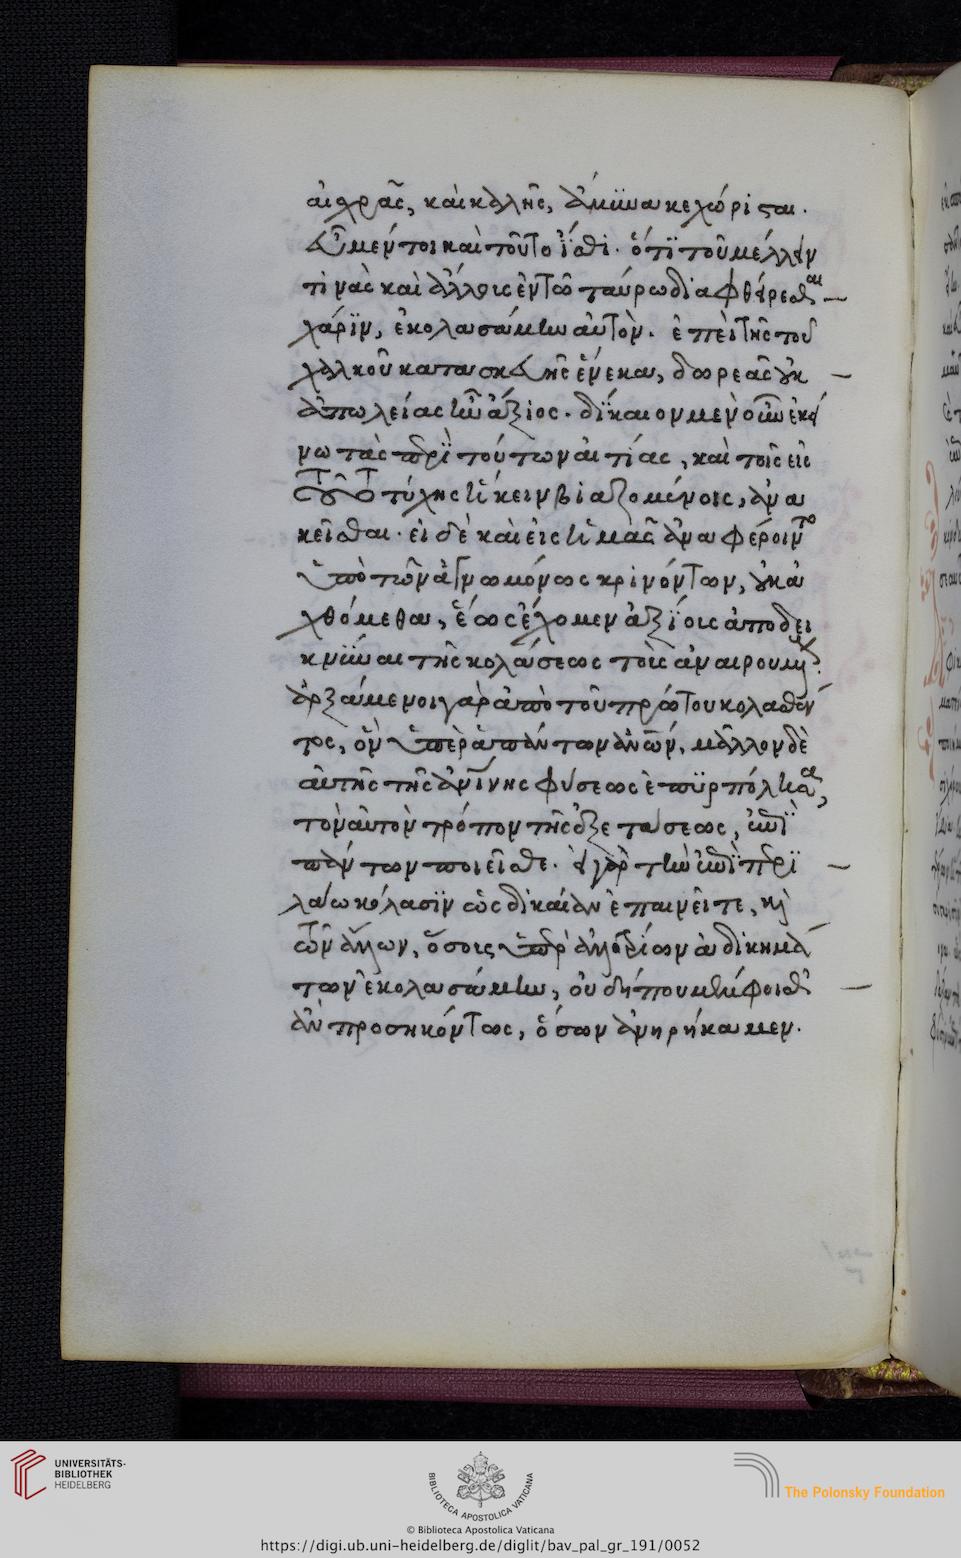 αἰσχρᾶς, καὶ καλῆς, ἄμυνα κεχώρισται.
εὖ μέντοι καὶ τοῦτο ἴσθι. ὅτι τοῦ μέλλειν
τινὰς καὶ ἄλλους ἐν τῷ ταύρω διαφθείρεσθαι
χάριν, ἐκολασάμην αὐτὸν. ἐπεὶ τῆς τοῦ
χαλκοῦ κατασκευῆς ἕνεκα, δωρεᾶς οὐκ
ἀπωλείας ἦν ἄξιος. δίκαιον μὲν οὖν ἐκεί
νω τὰς περὶ τούτων αἰτίας, καὶ τοῖς εἰς
τύχης ἥκειν βιαζομένοις, ἀνα
κεῖσθαι. εἰ δὲ καὶ εἰς ἡμᾶς ἀναφέροιντο
ὑπὸ τῶν ἀγνωμόνως κρινόντων, οὐκ ἀ
χθόμεθα, ἕως ἔχομεν ἀξίοις ἀποδει
κνύναι τῆς κολάσεως τοὺς ἀναιρουμένους.
ἀρξάμενοι γὰρ ἀπὸ τοῦ πρώτου κολασθέν
τος, ὃν ὑπὲρ ἁπάντων ἀνῶν, μᾶλλον δὲ
αὐτῆς τῆς ἀνίνης φύσεως ἐπυρπόλησα,
τὸν αὐτὸν τρόπον τῆς ἐξετάσεως, ἐπὶ
πάντων ποιεῖσθε. εἰ γὰρ τὴν ἐπὶ περι
λάω κόλασιν ὡς δικαίαν ἐπαινεῖτε, καὶ
τῶν ἄλλων, ὅσους ὑπὲρ ἀνοσίων ἀδικημά
των ἐκολασάμην, οὐ δήπου μέμφοισθ
ἂν προσηκόντως, ὅσων ἀνηρήκαμεν.
UNIVERSITÄTS-
BIBLIOTHEK
HEIDELBERG
BIBLIOTECA APOSTOLICA VATICANA
The Polonsky Foundation
© Biblioteca Apostolica Vaticana
https://digi.ub.uni-heidelberg.de/diglit/bav_pal_gr_191/0052